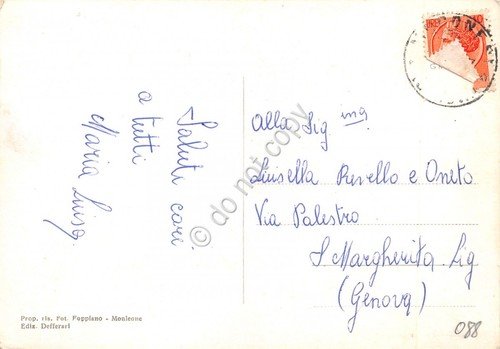 Saluti cari
a tutti
Maria Luisa
Alla Sig ina
Luisella Revello e Oneto
Via Palestro
S Margherita Lig
(Genova)
Prop. ris. Fot. Foppiano - Monleone
Ediz. Defferari
088
© do not copy